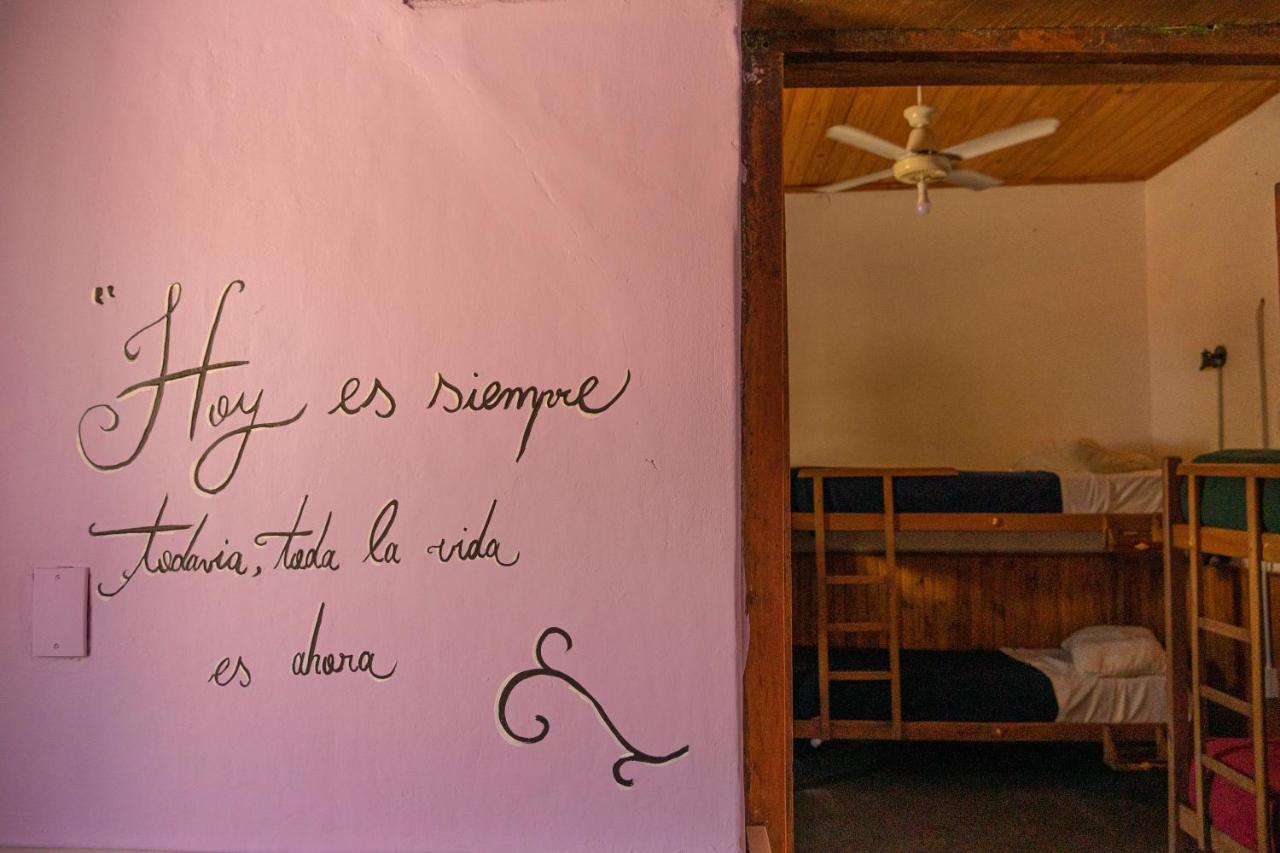 "Hoy es siempre
todavia, toda la vida
es ahora